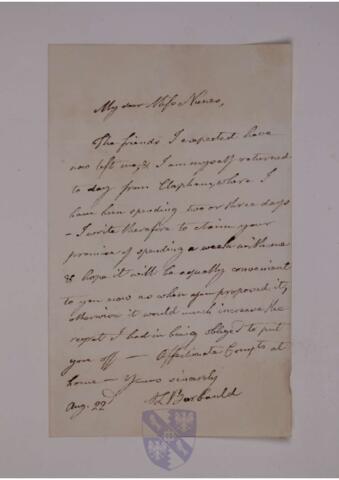 My dear Miss Nunes,
The friends I expected have
now left me, & I am myself returned
to day from Clapham, where I
have been spending two or three days
- I write therefore to claim your
promise of spending a week with me
& hope it will be equally convenient
to you now as when you proposed it,
otherwise it would much increase the
regret I had in being obliged to put
you off — Affectionate Compts at
home — Yours sincerely
Aug. 22d A L Barbauld